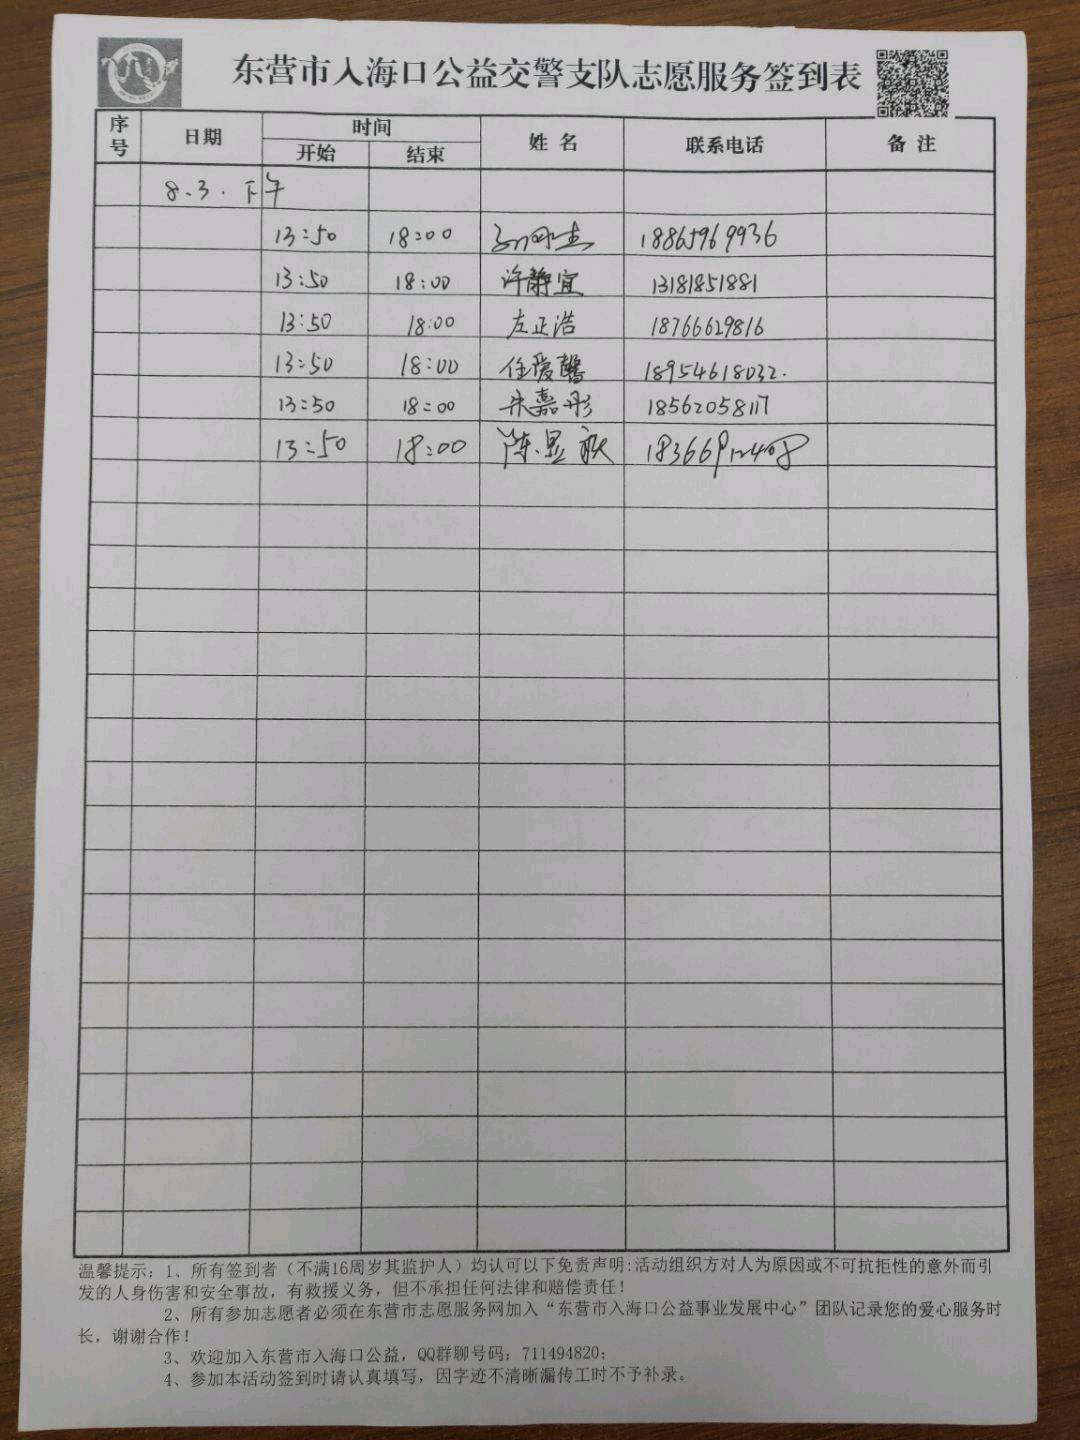 东营市入海口公益交警支队志愿服务签到表
序号 日期 时间 姓名 联系电话 备注
开始 结束
8.3.下午
13:50 18:00 18865969936
13:50 18:00 许静宜 13181851881
13:50 18:00 左正浩 18766629816
13:50 18:00 任爱馨 18954618032.
13:50 18:00 朱嘉彤 18562058117
13:50 18:00 陈显 18366912408
温馨提示：1、所有签到者（不满16周岁其监护人）均认可以下免责声明:活动组织方对人为原因或不可抗拒性的意外而引
发的人身伤害和安全事故，有救援义务，但不承担任何法律和赔偿责任！
2、所有参加志愿者必须在东营市志愿服务网加入“东营市入海口公益事业发展中心”团队记录您的爱心服务时
长，谢谢合作！
3、欢迎加入东营市入海口公益，QQ群聊号码：711494820；
4、参加本活动签到时请认真填写，因字迹不清晰漏传工时不予补录。